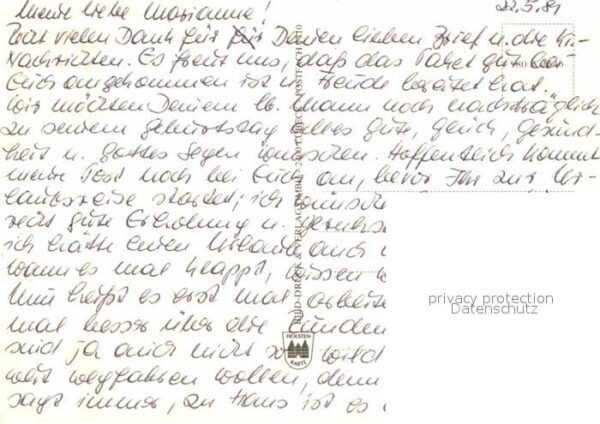 Meine liebe Marianne! 22.5.81
Hab vielen Dank für für Deinen lieben Brief u. die
Nachrichten. Es freut uns, daß das Paket gut bei
Euch angekommen ist u. Freude bereitet hat.
Wir möchten Deinem lb. Mann noch nachträglich
zu seinem Geburtstag alles Gute, Glück, Gesund-
heit u. Gottes Segen wünschen. Hoffentlich kommt
meine Post noch bei Euch an, bevor Ihr zur Ur-
laubsreise startet; ich wünsche
recht gute Erholung u.
ich hätte einen Urlaub auch
wann es mal klappt, wissen
Nun heißt es erst mal arbeiten
mal besser über die Runden
sind ja auch nicht so wild
weit wegfahren wollen, denn
sagt immer, zu Haus ist es
BILD-DRUCK & VERLAG
HOLSTEN
KARTE
privacy protection
Datenschutz